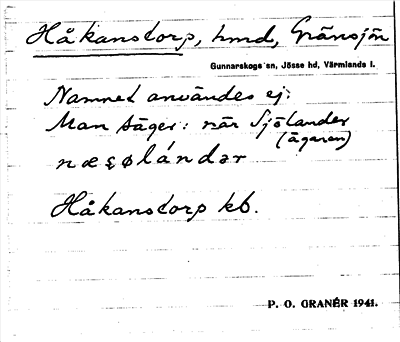 Håkanstorp, hmd, Gränsjön
Gunnarskogs sn, Jösse hd, Värmlands l.
Namnet användes ej.
Man säger: när Sjölander
(ägaren)
Håkanstorp kb.
P. O. GRANÉR 1941.